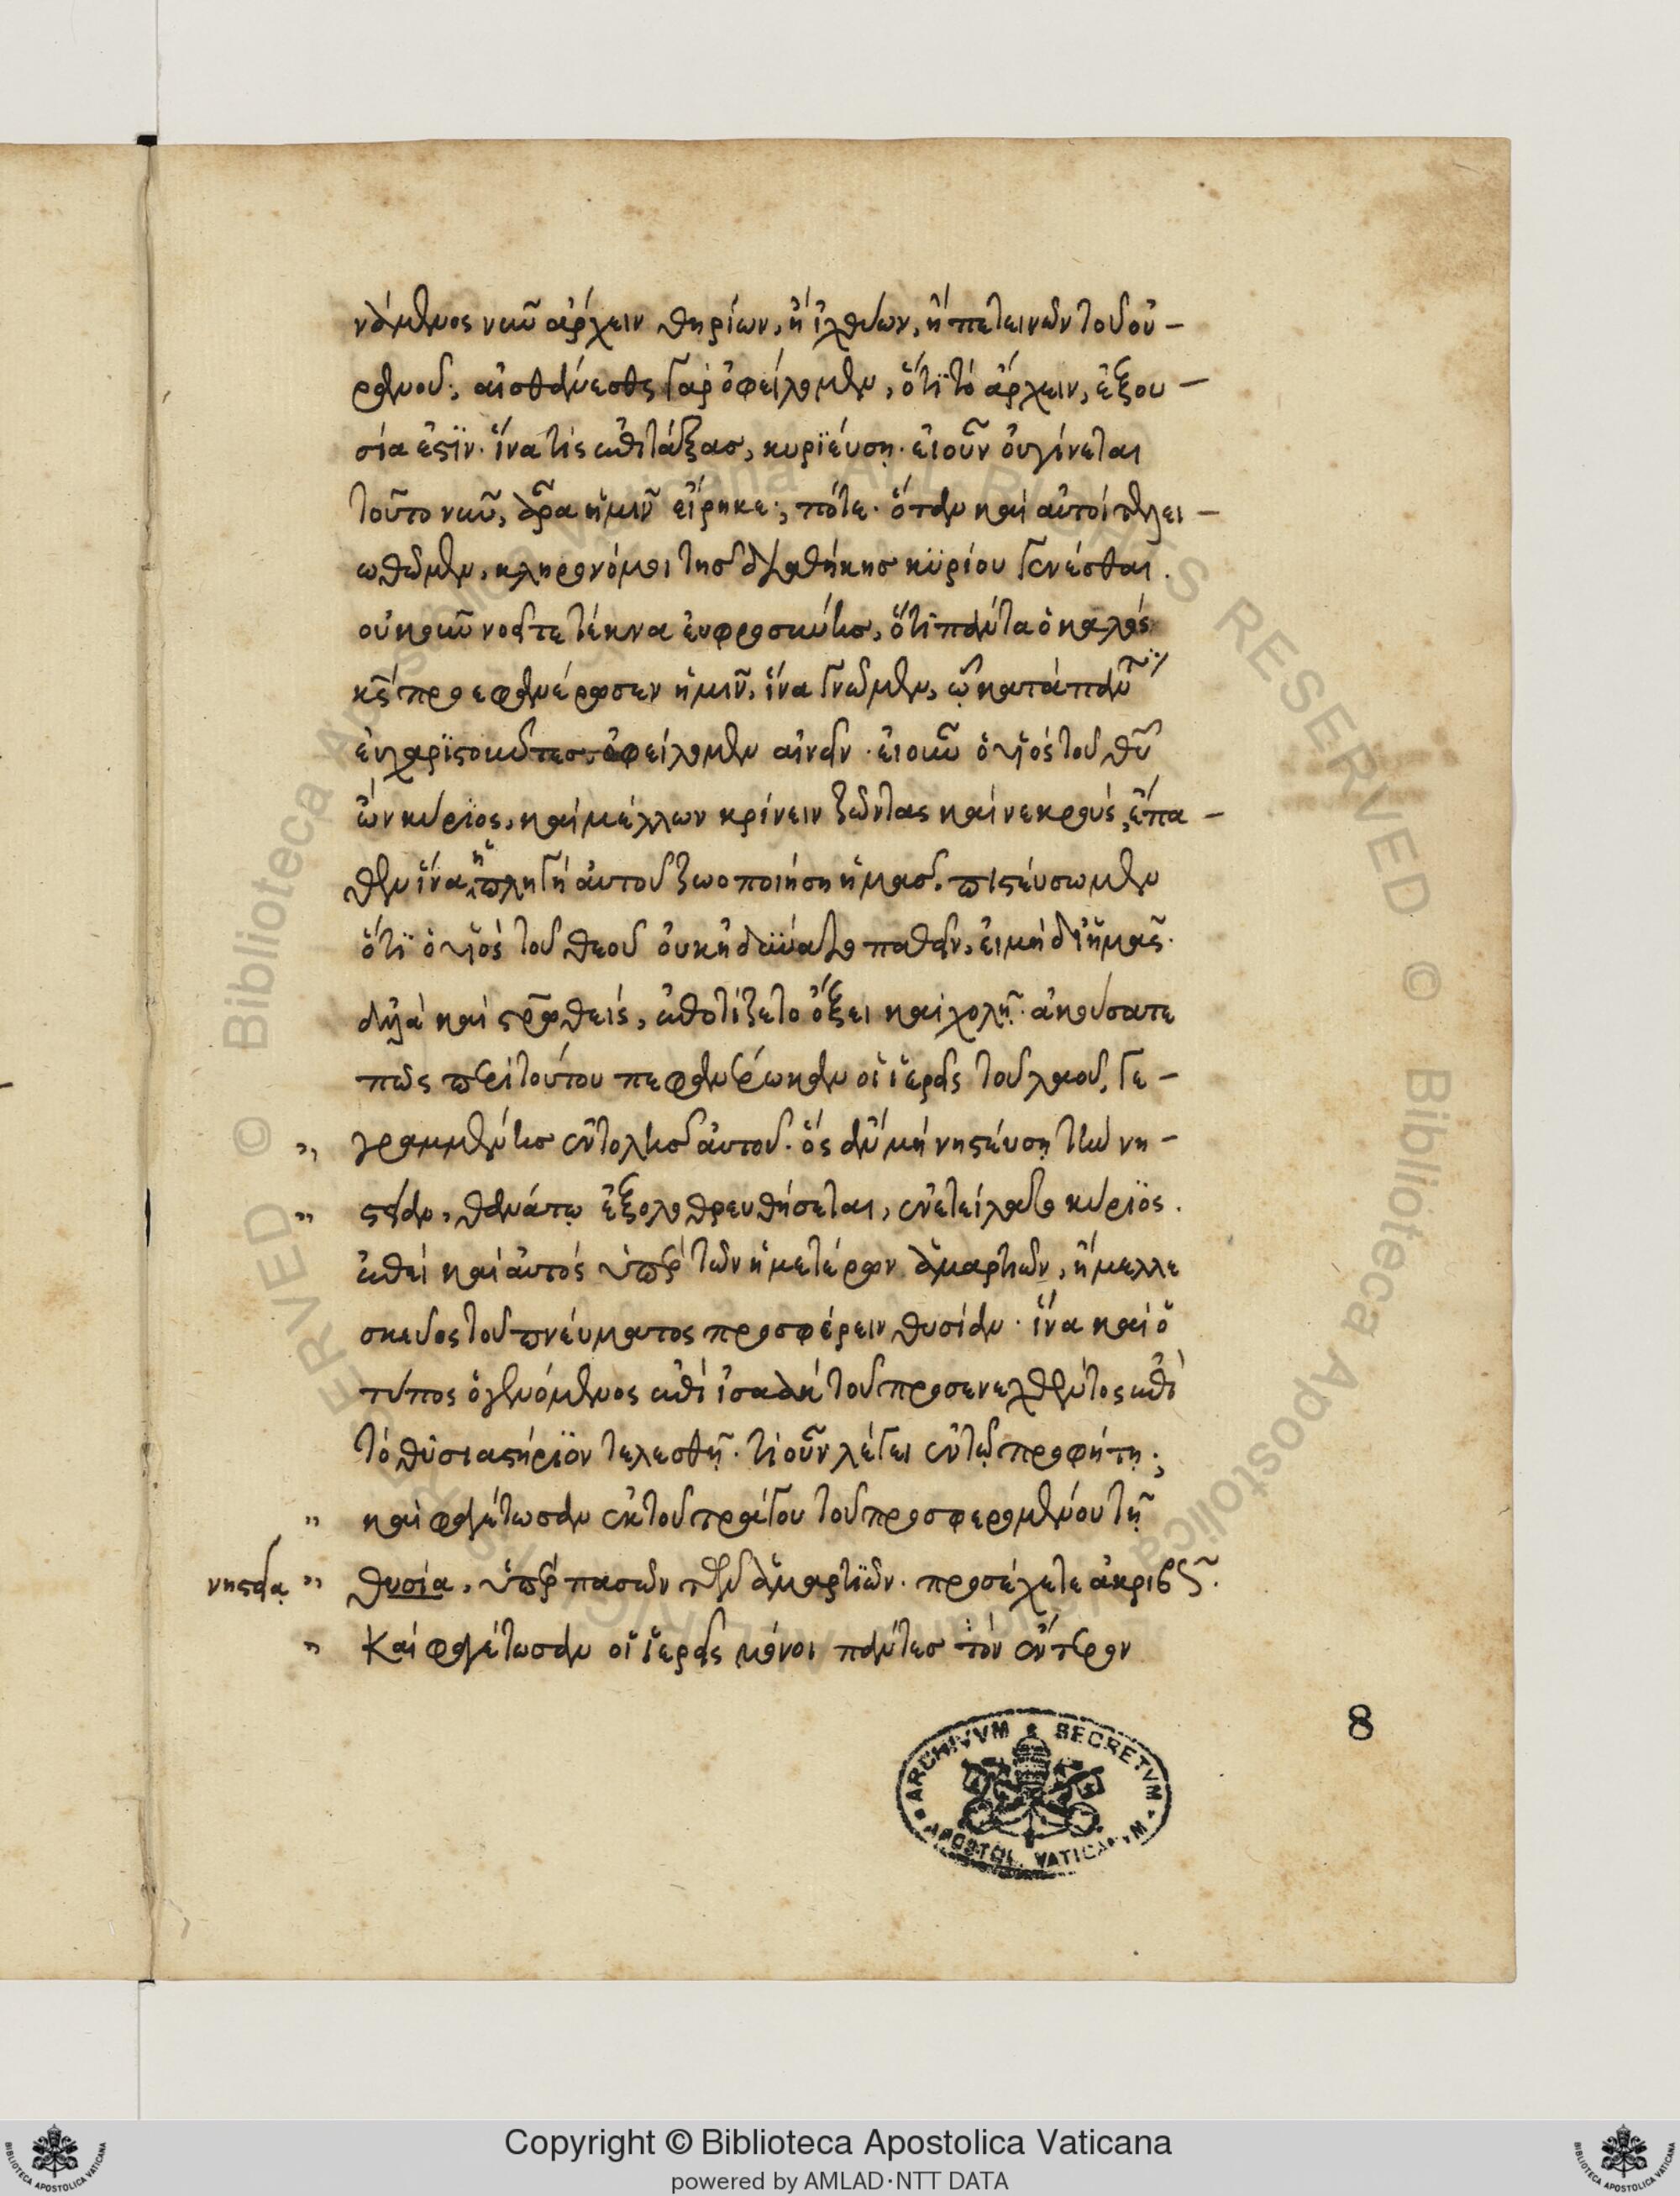 νάμενος νῦν ἄρχειν θηρίων, ἢ ἰχθύων, ἢ πετεινῶν τοῦ οὐ–
ρανοῦ; αἰσθάνεσθε γὰρ ὀφείλομεν, ὅτϊ τὸ ἄρχειν, ἐξου–
σία ἐστϊν· ἵνα τὶς ἐπιτάξας, κυρϊέυσῃ· εἰ οὖν ὀυ γίνεται
τοῦτο νῦν, ἄρα ἡμῖν εἴρηκε; πότε· ὅταν καὶ αὐτοὶ τελει–
ωθῶμεν, κληρονόμοι τῆς διαθήκης κϋρίου γενέσθαι.
οὐκοῦν νοεῖτε τέκνα ἐυφροσύνης, ὅτϊ πάντα ὁ καλὸς
κ̅ς̅ προεφανέρωσεν ἡμῖν, ἵνα γνῶμεν, ᾧ κατὰ πᾶν
ἐυχαρϊστοῦντες ὀφείλομεν αἰνεῖν· εἰ οὖν ὁ υἱὸς τοῦ θ̅υ̅
ὢν κύρϊος, καὶ μέλλων κρίνειν ζῶντας καὶ νεκροὺς, ἔπα–
θεν ἵνα ἡ πληγὴ ἀυτοῦ ζωοποιήσῃ ἡμᾶς. πιστεύσωμεν
ὅτϊ ὁ υἱὸς τοῦ θεοῦ ὀυκ ἠδύνατο παθεῖν, εἰ μὴ δι ἡμᾶς.
ἀλλὰ καὶ στρωθεὶς, ἐποτίζετο ὄξει καὶ χολῇ. ἀκούσατε
πῶς περὶ τούτου πεφανέρωκαν οἱ ἱερεῖς τοῦ λαοῦ, γε–
" γραμμένης ἐντολῆς ἀυτοῦ. ὃς ἂν μὴ νηστέυσῃ τὴν νη–
" στείαν, θανάτῳ ἐξολοθρευθήσεται, ἐνετείλατο κύρϊος.
ἐπεὶ καὶ ἀυτὸς ὑπὲρ τῶν ἡμετέρων ἁμαρτιῶν, ἤμελλε
σκεῦος τοῦ πνέυματος προσφέρειν θυσίαν· ἵνα καὶ ὁ
τύπος ὁ γενόμενος ἐπὶ ἰσαὰκ τοῦ προσενεχθέντος ἐπὶ
τὸ θυσιαστήρϊον τελεσθῇ. τί οὖν λέγει ἐν τῷ προφήτῃ;
" καὶ φαγέτωσαν ἐκ τοῦ τράγου τοῦ προσφερομένου τῇ
νηστείᾳ " θυσία, ὑπὲρ πασῶν τῶν ἁμαρτϊῶν. προσέχετε ἀκριβῶς.
" Καὶ φαγέτωσαν οἱ ἱερεῖς μόνοι πάντες τὸν ἔντερον
8
ARCHIVVM SECRETVM
APOSTOL. VATICANVM
Copyright © Biblioteca Apostolica Vaticana
powered by AMLAD·NTT DATA